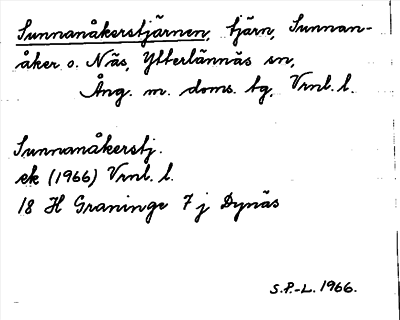 Sunnanåkerstjärnen, tjärn, Sunnan-
åker o. Näs, Ytterlännäs sn,
Ång. m. doms. tg, Vrnl. l.
Sunnanåkerstj.
ek (1966) Vrnl. l.
18 H Graninge 7 j Dynäs
S.P.-L. 1966.